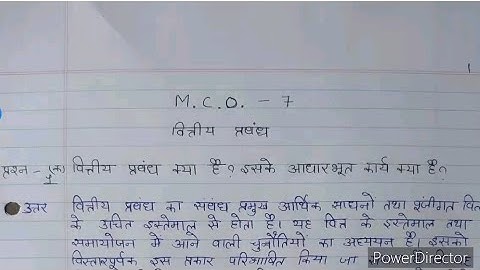 1
M.C.O. - 7
वित्तीय प्रबंध
प्रश्न - 1 (क) वित्तीय प्रबंध क्या है? इसके आधारभूत कार्य क्या है?
उत्तर वित्तीय प्रबंध का संबंध प्रमुख आर्थिक साधनो तथा पूंजीगत वित्त
के उचित इस्तेमाल से होता है। यह वित्त के इस्तेमाल तथा
समायोजन में आने वाली चुनौतियों का अध्ययन है। इसको
विस्तारपूर्वक इस प्रकार परिभाषित किया जा
PowerDirector